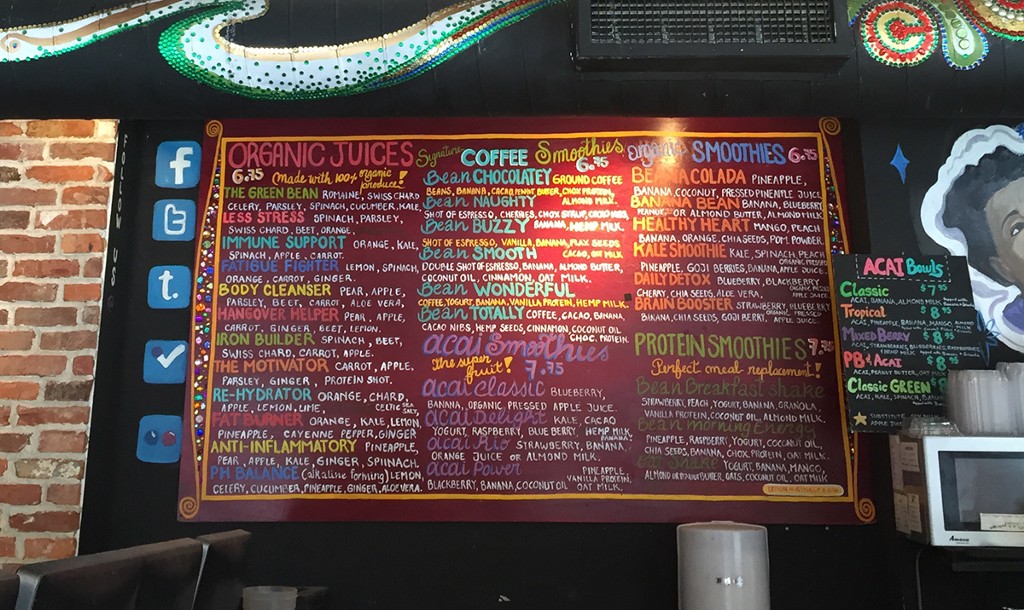 ORGANIC JUICES
6.75 Made with 100% organic produce!
THE GREEN BEAN ROMAINE, SWISS CHARD
CELERY, PARSLEY, SPINACH, CUCUMBER, KALE,
LESS STRESS SPINACH, PARSLEY,
SWISS CHARD, BEET, ORANGE.
IMMUNE SUPPORT ORANGE, KALE,
SPINACH, APPLE, CARROT.
FATIGUE FIGHTER LEMON, SPINACH,
ORANGE, CARROT, GINGER.
BODY CLEANSER PEAR, APPLE,
PARSLEY, BEET, CARROT, ALOE VERA.
HANGOVER HELPER PEAR, APPLE,
CARROT, GINGER, BEET, LEMON.
IRON BUILDER SPINACH, BEET,
SWISS CHARD, CARROT, APPLE.
THE MOTIVATOR CARROT, APPLE,
PARSLEY, GINGER, PROTEIN SHOT.
RE-HYDRATOR ORANGE, CHARD,
APPLE, LEMON, LIME, CELTIC SEA SALT.
FAT BURNER ORANGE, KALE, LEMON,
PINEAPPLE, CAYENNE PEPPER, GINGER
ANTI-INFLAMMATORY PINEAPPLE,
PEAR, APPLE, KALE, GINGER, SPIINACH.
PH BALANCE (alkaline forming) LEMON,
CELERY, CUCUMBER, PINEAPPLE, GINGER, ALOE VERA.
Signature COFFEE Smoothies
6.75
Bean CHOCOLATEY GROUND COFFEE
BEANS, BANANA, CACAO, PEANUT BUTTER, CHOX PROTEIN,
Bean NAUGHTY ALMOND MILK.
SHOT OF ESPRESSO, CHERRIES, CHOX SYRUP, CACAO NIBS,
Bean BUZZY BANANA, HEMP MILK.
SHOT OF ESPRESSO, VANILLA, BANANA, FLAX SEEDS
Bean SMOOTH CACAO, OAT MILK.
DOUBLE SHOT OF ESPRESSO, BANANA, ALMOND BUTTER,
COCONUT OIL, CINNAMON, OAT MILK.
Bean WONDERFUL
COFFEE, YOGURT, BANANA, VANILLA PROTEIN, HEMP MILK.
Bean TOTALLY COFFEE, CACAO, BANANA,
CACAO NIBS, HEMP SEEDS, CINNAMON, COCONUT OIL. CHOC. PROTEIN.
acai Smoothies
The super fruit! 7.75
acai classic BLUEBERRY,
BANNA, ORGANIC PRESSED APPLE JUICE.
acai KALE, CACAO
YOGURT, RASPBERRY, BLUEBERRY, HEMP MILK
acai Rio STRAWBERRY, BANANA,
ORANGE JUICE or ALMOND MILK.
acai Power PINEAPPLE,
BLACKBERRY, BANANA, COCONUT OIL VANILLA PROTEIN, OAT MILK.
Organic SMOOTHIES 6.75
BEANA COLADA PINEAPPLE,
BANANA, COCONUT, PRESSED PINEAPPLE JUICE
BANANA BEAN BANANA, BLUEBERRY
PEANUT OR ALMOND BUTTER, ALMOND MILK
HEALTHY HEART MANGO, PEACH
BANANA, ORANGE, CHIA SEEDS, POM. POWDER.
KALE SMOOTHIE KALE, SPINACH, PEACH
PINEAPPLE, GOJI BERRIES, BANANA, APPLE JUICE.
DAILY DETOX BLUEBERRY, BLACKBERRY
CHERRY, CHIA SEEDS, ALOE VERA, APPLE JUICE
BRAIN BOOSTER STRAWBERRY, BLUEBERRY
BANANA, CHIA SEEDS, GOJI BERRY, ORGANIC PRESSED APPLE JUICE.
PROTEIN SMOOTHIES 7.75
Perfect meal replacement!
Bean Breakfast shake
STRAWBERRY, PEACH, YOGURT, BANANA, GRANOLA,
VANILLA PROTEIN, COCONUT OIL, ALMOND MILK.
Bean morning Energy
PINEAPPLE, RASPBERRY, YOGURT, COCONUT OIL,
CHIA SEEDS, BANANA, CHOX PROTEIN, OAT MILK.
Shake YOGURT, BANANA, MANGO,
ALMOND OR PEANUT BUTTER, OATS, COCONUT OIL, OAT MILK
ACAI Bowls
Classic $7.95
ACAI, BANANA, ALMOND MILK
Tropical $8.95
ACAI, PINEAPPLE, BANANA, MANGO, ALMOND
Mixed Berry $8.95
ACAI, STRAWBERRIES, BLUEBERRIES,
HEMP MILK
PB & Acai $8
ACAI, PEANUT BUTTER, OAT MILK
Classic GREEN $8
ACAI, KALE, SPINACH
SUBSTITUTE
APPLE JUICE
Amana